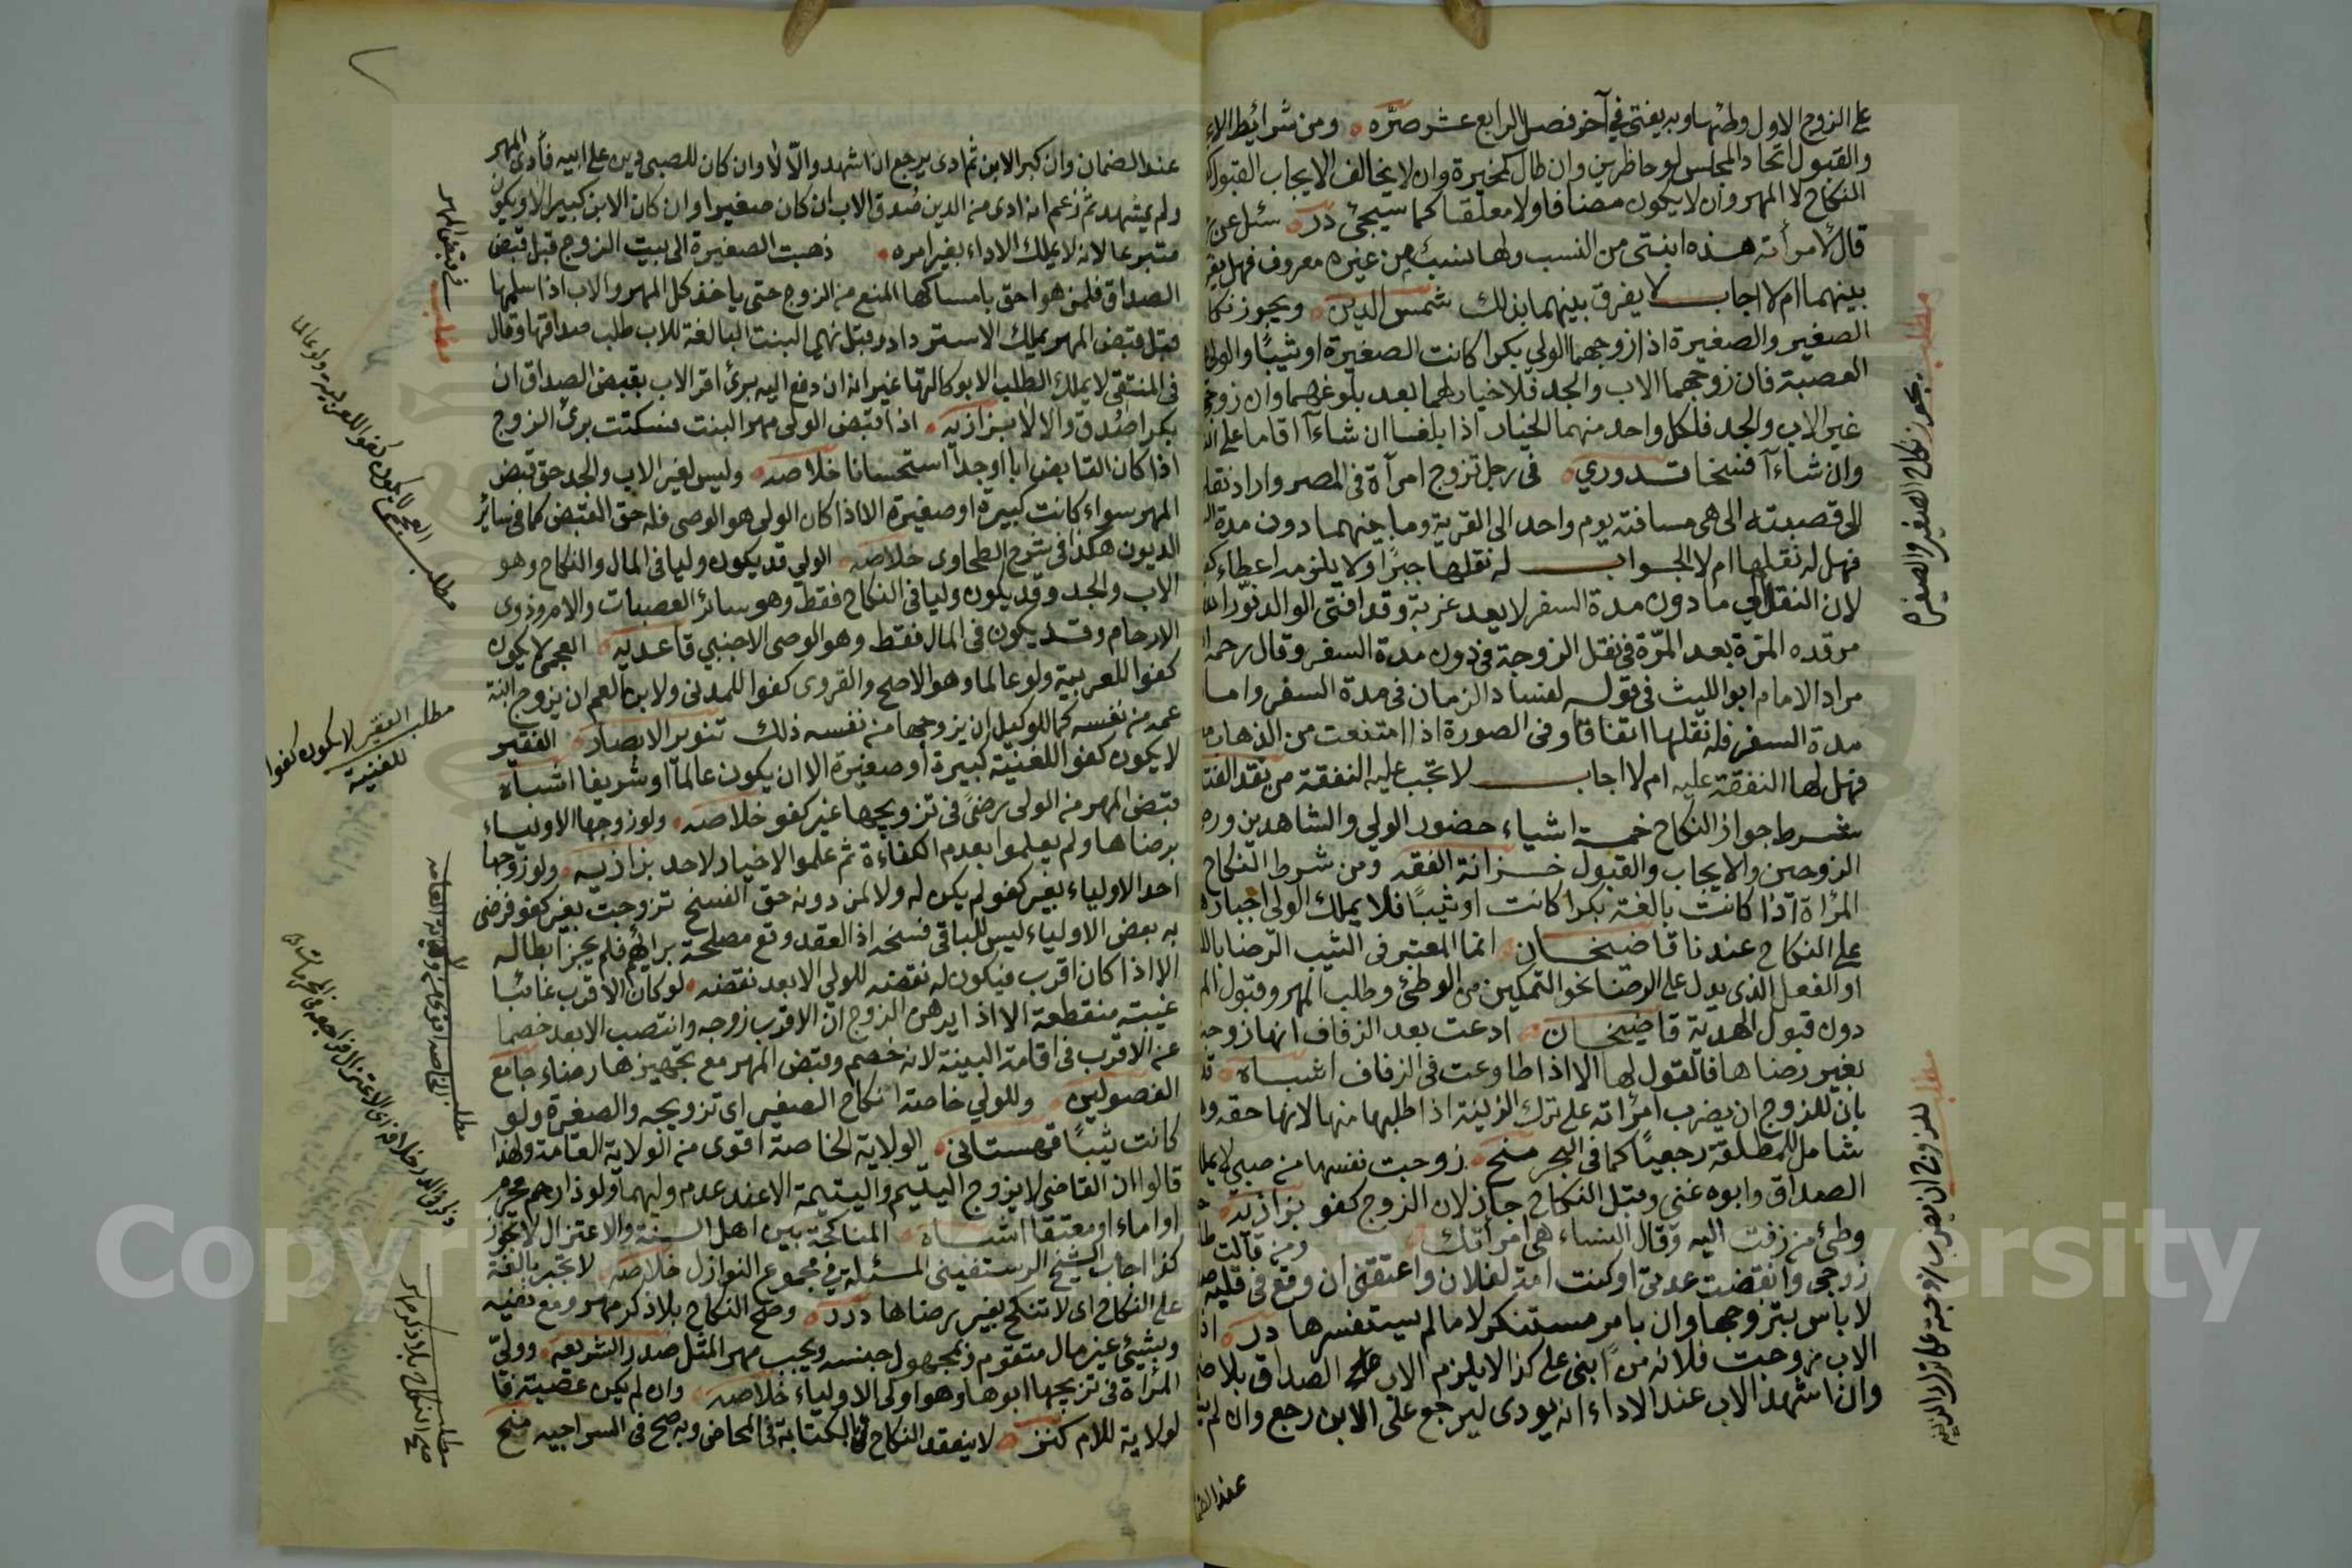 على الزوج الاول وطئها وبه يفتى في آخر فصل الرابع عشر صره ومن شرائط الا
والقبول اتحاد المجلس لو حاظرين وان طال كمخيرة وان لا يخالف الايجاب القبول
النكاح لا المهر وان لا يكون مضافا ولا معلقا كما سيجئ درر سئل عن
قال لامرأته هذه ابنتى من النسب ولها نسب من غيره معروف فهل
بينهما ام لا اجاب لا يفرق بينهما بذلك شمس الدين ويجوز نكا
الصغير والصغيرة اذا زوجهما الولي بكرا كانت الصغيرة او ثيبا والولي
العصبة فان زوجهما الاب والجد فلا خيار لهما بعد بلوغهما وان زوج
غير الاب والجد فلكل واحد منهما الخيار اذا بلغا ان شاءآ اقاما على
وان شاءآ فسخا قدوري في رجل تزوج امرأة في المصر واراد نقل
الى قصبته الى هى مسافة يوم واحد الى القرية وما بينهما دون مدة
فهل له نقلها ام لا الجواب له نقلها جبرا ولا يلزمه اعطاء
لان النقل الى ما دون مدة السفر لا يعد غربة وقد افتى الوالد نور الله
مرقده المرة بعد المرة في نقل الزوجة في دون مدة السفر وقال رحمه
مراد الامام ابو الليث في قوله لفساد الزمان في مدة السفر واما
مدة السفر فله نقلها اتفاقا وفى الصورة اذا امتنعت من الذهاب
فهل لها النفقة عليه ام لا اجاب لا تجب عليه النفقة من نقد الفتا
شرط جواز النكاح خمسة اشياء حضور الولي والشاهدين ور
الزوجين والايجاب والقبول خزانة الفقه ومن شرط النكاح
المرأة اذا كانت بالغة بكرا كانت او ثيبا فلا يملك الولى اجبار
على النكاح عندنا قاضيخان انما المعتبر فى الثيب الرضا
او الفعل الذى يدل على الرضا نحو التمكين من الوطئ وطلب المهر وقبول
دون قبول الهدية قاضيخان ادعت بعد الزفاف انها زوجت
بغير رضاها فالقول لها الا اذا طاوعت فى الزفاف اشباه
بان للزوج ان يضرب امرأته على ترك الزينة اذا طلبها منها لانها حقه
شامل للمطلقة رجعيا كما فى البحر منح زوجت نفسها من صبي لا
الصداق وابوه غنى وقبل النكاح جاز لان الزوج كفو بزازية
وطئ من زفت اليه وقال النساء هى امرأتك ومن قالت
زوجى وانقضت عدتى او كنت امة لفلان واعتقنى ان وقع فى قلبه
لا باس بتزوجها وان بامر مستنكر لا ما لم يستفسرها درر
الاب زوجت فلانة من ابنى على كذا لا يلزم الاب الصداق بلا
وان اشهد الاب عند الاداء انه يودى ليرجع على الابن رجع وان لم
عند الضما
مطلب يجوز نكاح الصغير والصغيرة
مطلب للزوج ان يضرب زوجته على ترك الزينة
عند الضمان وان كبر الابن ثم ادى يرجع ان اشهد والا لا وان كان للصبى دين على ابيه فأدى المهر
ولم يشهد ثم زعم انه ادى من الدين صدق الاب ان كان صغيرا وان كان الابن كبيرا لا ويكون
متبرعا لانه لا يملك الاداء بغير امره ذهبت الصغيرة الى بيت الزوج قبل قبض
الصداق فلمن هو احق بامساكها المنع من الزوج حتى ياخذ كل المهر والاب اذا سلمها
قبل قبض المهر يملك الاسترداد البنت البالغة للاب طلب صداقها وقال
فى المنتقى لا يملك الطلب الا بوكالتها غير انه ان دفع اليه برئ اقر الاب بقبض الصداق ان
بكرا صدق والا لا بزازيه اذا قبض الولى مهر البنت فسكتت برئ الزوج
اذا كان القابض ابا او جدا استحسانا خلاصه وليس لغير الاب والجد حق قبض
المهر سواء كانت كبيرة او صغيرة الا اذا كان الولى هو الوصى فله حق القبض كما فى سائر
الديون هكذا فى شرح الطحاوى خلاصه الولي قد يكون وليا فى المال والنكاح وهو
الاب والجد وقد يكون وليا فى النكاح فقط وهو سائر العصبات والام وذوى
الارحام وقد يكون فى المال فقط وهو الوصى الاجنبي قاعديه العجمى لا يكون
كفوا للعربية ولو عالما وهو الاصح والقروى كفوا للمدنى ولابن العم ان يزوج ابنة
عمه من نفسه كما للوكيل ان يزوجها من نفسه ذلك تنوير الابصار الفقير
لا يكون كفوا للغنية كبيرة او صغيرة الا ان يكون عالما او شريفا اشباه
قبض المهر من الولى رضى فى تزويجها غير كفو خلاصه ولو زوجها الاولياء
برضاها ولم يعلموا بعدم الكفاءة ثم علموا لا خيار لاحد بزازيه ولو زوجها
احد الاولياء بغير كفو لم يكن له ولا لمن دونه حق الفسخ تزوجت بغير كفو فرضى
به بعض الاولياء ليس للباقى فسخه اذ العقد وقع مصلحة برأيهم فلم يجز ابطاله
الا اذا كان اقرب فيكون له نقضه للولي الابعد نقضه لو كان الاقرب غائبا
غيبة منقطعة الا اذا برهن الزوج ان الاقرب زوجه وانتصب الابعد خصما
عن الاقرب فى اقامة البينة لانه خصم وقبض المهر مع تجهيزها رضاء جامع
الفصولين وللولي خاصة انكاح الصغير اى تزويجه والصغيرة ولو
كانت ثيبا قهستانى الولاية الخاصة اقوى من الولاية العامة ولهذا
قالوا ان القاضى لا يزوج اليتيم واليتيمة الا عند عدم وليهما ولو ذا رحم محرم
او اما او معتقا اشباه المناكحة بين اهل السنة والاعتزال لا يجوز
كذا اجاب الشيخ الرستفينى المسئلة فى مجموع النوازل خلاصه لا تجبر بالغة
على النكاح اى لا تنكح بغير رضاها درر وصح النكاح بلا ذكر مهر ومع نفيه
وبشيئى غير مال متقوم وبمجهول جنسه ويجب مهر المثل صدر الشريعه وولى
المرأة فى تزيجها ابوها وهو اولى الاولياء خلاصه وان لم يكن عصبة فا
لولاية للام كنز لا ينعقد النكاح بالكتابة فى المحاض وبه صح فى السراجيه منح
مطلب فى قبض المهر
مطلب العجمى لا يكون كفوا للعربية ولو عالما
مطلب الفقير لا يكون كفوا
للغنية
مطلب الولاية الخاصة اقوى من الولاية العامة
مطلب صح النكاح بلا ذكر مهر
Copyright © King Saud University